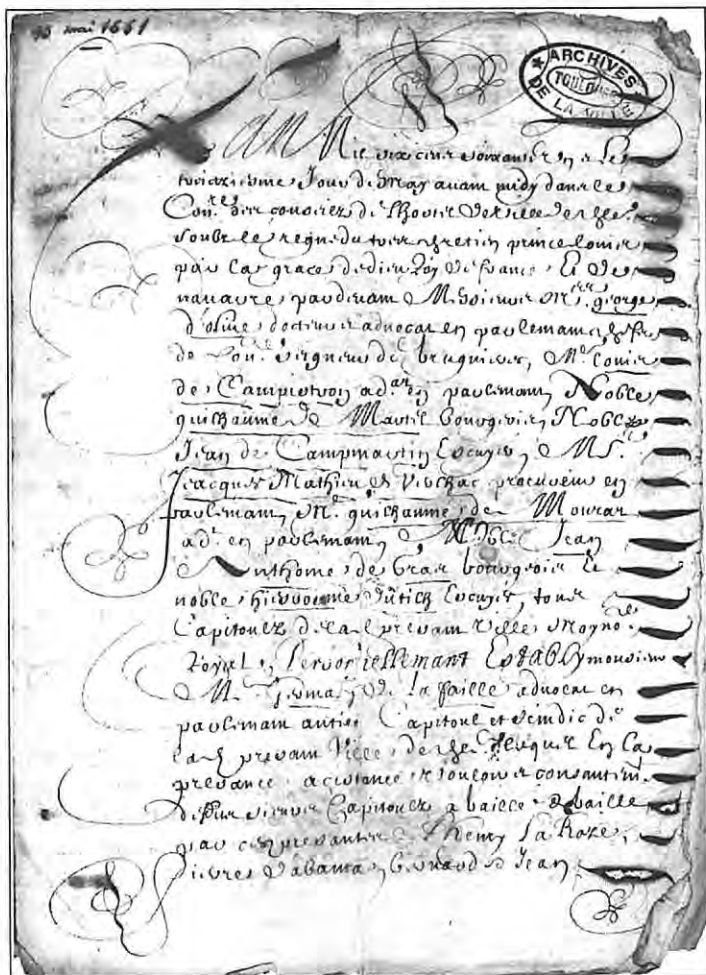 13 mai 1661
ARCHIVES DE LA VILLE
TOULOUSE
L'AN Mil six cens soixante un et le
treiziesme Jour de May avant midy dans le
Con.re des consiers de l'hostel de ville de Thle
soubz le regne du tres chretien prince Louis
par la grace de dieu Roy de france et de
navarre pardevant Messieurs Mrs george
d'olive docteur et advocat en parlemant
de seigneur de bruguieres, Me Louis
de Campistron ad.at en parlemant Noble
guilhaume de Martel bourgeois, Noble
Jean de Campmartin Escuyer, Me
Jacques Mathieu de Vischac procureur en
parlemant, Me guilhaume de Mourar
ad.t en parlemant, Noble Jean
Anthoine de bourgeois et
noble hierosme d'Utich Escuyer, tous
Capitoulz de la presant ville
Royal, Personellemant Estably monsieur
Me Germain de La faille advocat en
parlemant antien Capitoul et scindic de
lad presant Ville de Thle lequel En la
presance assistance et consantemt
desd sieurs Capitoulz a baillé et baille
par ces presantes a Henry La Roze,
Pierre Dabama, bernard et Jean